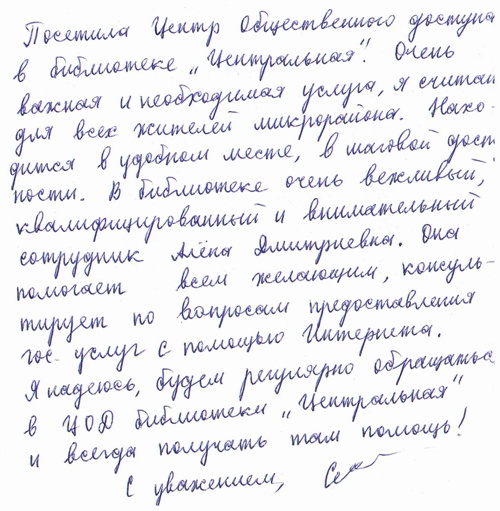 Посетила Центр Общественного доступа
в библиотеке „Центральная". Очень
важная и необходимая услуга, я считаю
для всех жителей микрорайона. Нахо-
дится в удобном месте, в шаговой дост
пности. В библиотеке очень вежливый,
квалифицированный и внимательный
сотрудник Алёна Дмитриевна. Она
помогает всем желающим, консуль-
тирует по вопросам предоставления
гос. услуг с помощью Интернета.
Я надеюсь, будем регулярно обращаться
в ЦОД библиотеки „Центральная"
и всегда получать там помощь!
С уважением,